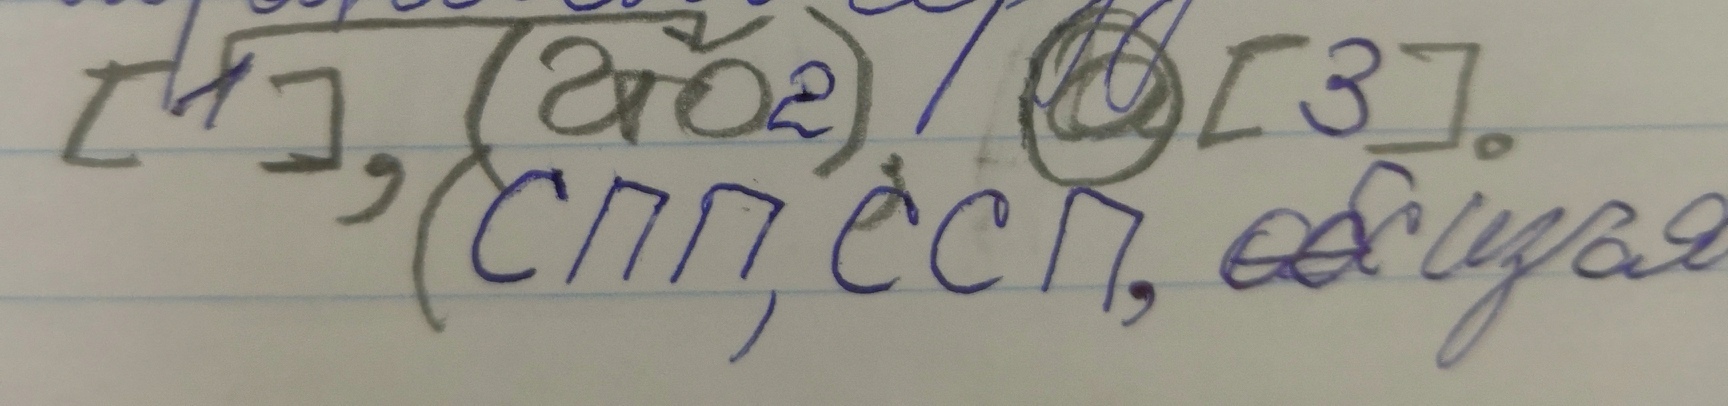 [1], (что 2), а [3].
(СПП, ССП, общая